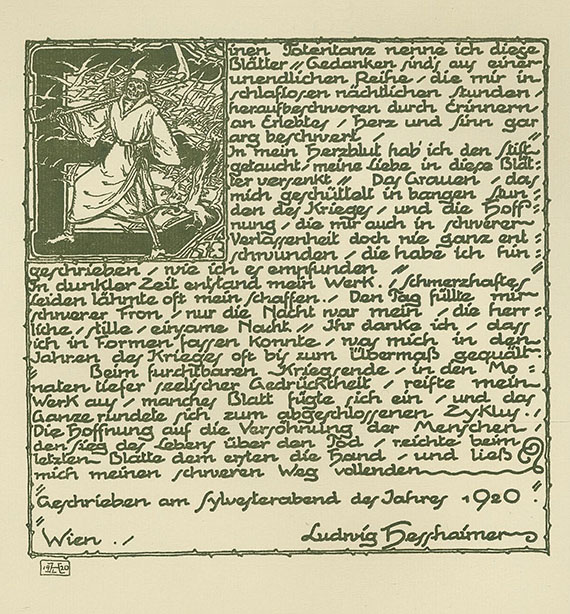 inen Totentanz nenne ich diese
Blätter // Gedanken sind's aus einer
unendlichen Reihe / die mir in
schlaflosen nächtlichen Stunden /
heraufbeschworen durch Erinnern
an Erlebtes / Herz und Sinn gar
arg beschwert /
In mein Herzblut hab' ich den Stift
getaucht / meine Liebe in diese Blät:
ter versenkt // Das Grauen / das
mich geschüttelt in bangen Stun:
den des Krieges / und die Hoff:
nung / die mir auch in schwerer
Verlassenheit doch nie ganz ent:
schwunden / die habe ich hin:
geschrieben / wie ich es empfunden //
In dunkler Zeit entstand mein Werk ./ Schmerzhaftes
Leiden lähmte oft mein Schaffen ./ Den Tag füllte mir
schwerer Fron / nur die Nacht war mein / die herr:
liche / stille / einsame Nacht // Ihr danke ich / dass
ich in Formen fassen konnte / was mich in den
Jahren des Krieges oft bis zum Übermaß gequält
// Beim furchtbaren Kriegsende / in den Mo:
naten tiefer seelischer Gedrücktheit / reifte mein
Werk aus / manches Blatt fügte sich ein / und das
Ganze rundete sich zum abgeschlossenen Zyklus ./
Die Hoffnung auf die Versöhnung der Menschen /
den Sieg des Lebens über den Tod / reichte beim
letzten Blatte dem ersten die Hand / und ließ
mich meinen schweren Weg vollenden
Geschrieben am Sylvesterabend des Jahres 1920 .
Wien ./ Ludwig Hesshaimer